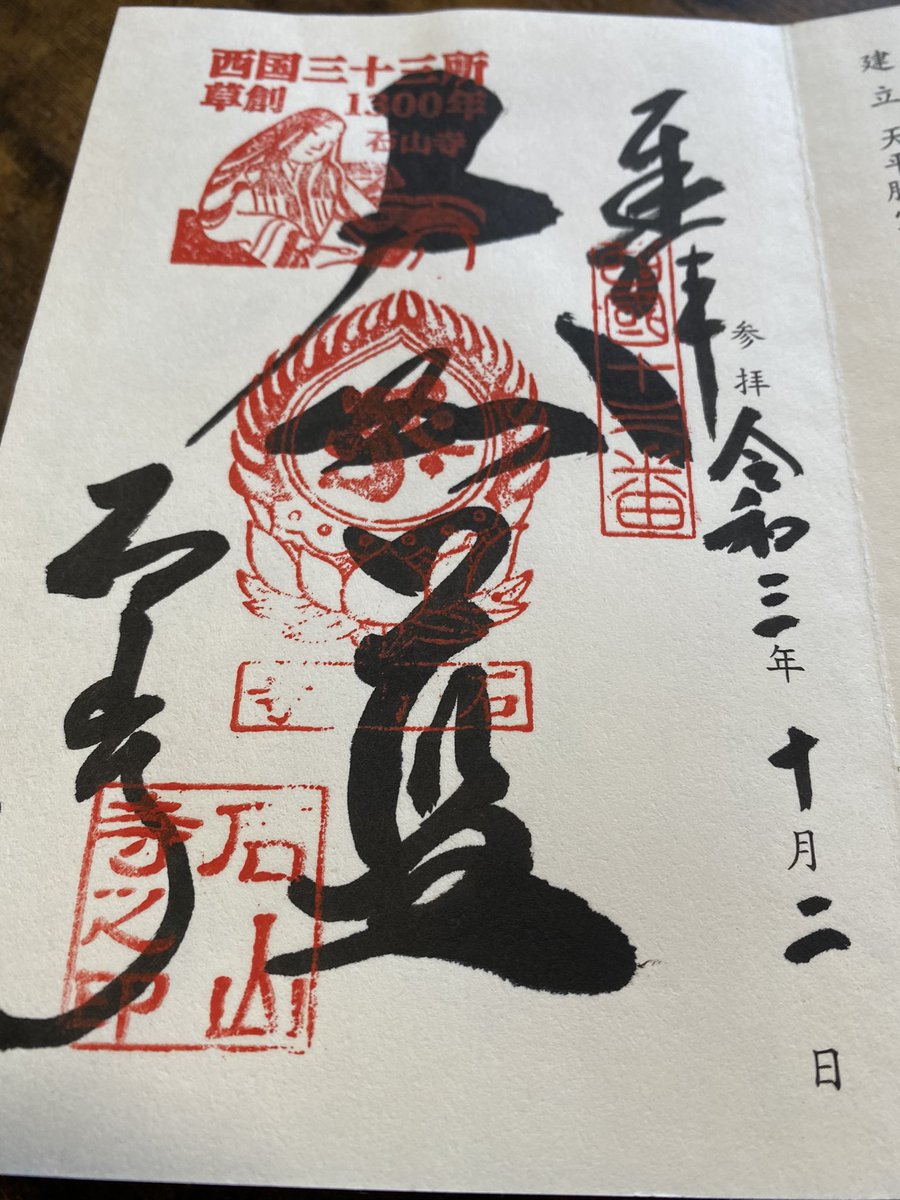 建立 天平
参拝 令和三年十月二日
奉拝
西國十三番
大伽藍
石山寺
西国三十三所
草創 1300年
石山寺
石山寺之印